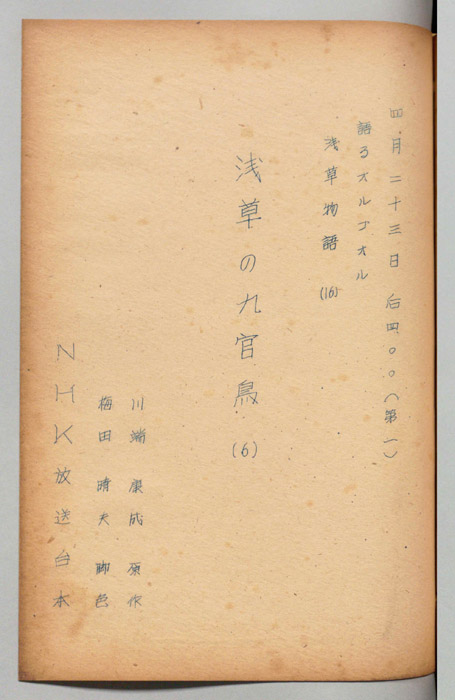 四月二十三日 后四、〇〇(第一)
語るオルゴオル
浅草物語 (16)
浅草の九官鳥 (6)
川端康成 原作
梅田晴夫 脚色
NHK放送台本